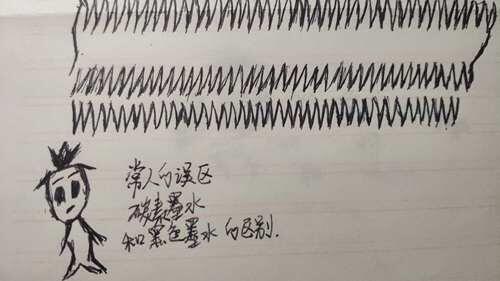 常人的误区
碳素墨水
和黑色墨水的区别.